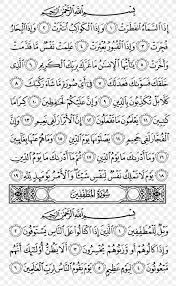 بِسْمِ ٱللَّهِ ٱلرَّحْمَٰنِ ٱلرَّحِيمِ
إِذَا ٱلسَّمَآءُ ٱنفَطَرَتْ ١ وَإِذَا ٱلْكَوَاكِبُ ٱنتَثَرَتْ ٢ وَإِذَا ٱلْبِحَارُ
فُجِّرَتْ ٣ وَإِذَا ٱلْقُبُورُ بُعْثِرَتْ ٤ عَلِمَتْ نَفْسٌ مَّا قَدَّمَتْ
وَأَخَّرَتْ ٥ يَٰٓأَيُّهَا ٱلْإِنسَٰنُ مَا غَرَّكَ بِرَبِّكَ ٱلْكَرِيمِ ٦ ٱلَّذِى
خَلَقَكَ فَسَوَّىٰكَ فَعَدَلَكَ ٧ فِىٓ أَىِّ صُورَةٍ مَّا شَآءَ رَكَّبَكَ ٨
كَلَّا بَلْ تُكَذِّبُونَ بِٱلدِّينِ ٩ وَإِنَّ عَلَيْكُمْ لَحَٰفِظِينَ ١٠ كِرَامًا
كَٰتِبِينَ ١١ يَعْلَمُونَ مَا تَفْعَلُونَ ١٢ إِنَّ ٱلْأَبْرَارَ لَفِى نَعِيمٍ ١٣
وَإِنَّ ٱلْفُجَّارَ لَفِى جَحِيمٍ ١٤ يَصْلَوْنَهَا يَوْمَ ٱلدِّينِ ١٥ وَمَا هُمْ عَنْهَا بِغَآئِبِينَ
١٦ وَمَآ أَدْرَىٰكَ مَا يَوْمُ ٱلدِّينِ ١٧ ثُمَّ مَآ أَدْرَىٰكَ مَا يَوْمُ ٱلدِّينِ
١٨ يَوْمَ لَا تَمْلِكُ نَفْسٌ لِّنَفْسٍ شَيْـًٔا وَٱلْأَمْرُ يَوْمَئِذٍ لِّلَّهِ ١٩
سُورَةُ ٱلْمُطَفِّفِينَ
بِسْمِ ٱللَّهِ ٱلرَّحْمَٰنِ ٱلرَّحِيمِ
وَيْلٌ لِّلْمُطَفِّفِينَ ١ ٱلَّذِينَ إِذَا ٱكْتَالُوا۟ عَلَى ٱلنَّاسِ يَسْتَوْفُونَ ٢
وَإِذَا كَالُوهُمْ أَو وَّزَنُوهُمْ يُخْسِرُونَ ٣ أَلَا يَظُنُّ أُو۟لَٰٓئِكَ أَنَّهُم
مَّبْعُوثُونَ ٤ لِيَوْمٍ عَظِيمٍ ٥ يَوْمَ يَقُومُ ٱلنَّاسُ لِرَبِّ ٱلْعَٰلَمِينَ ٦